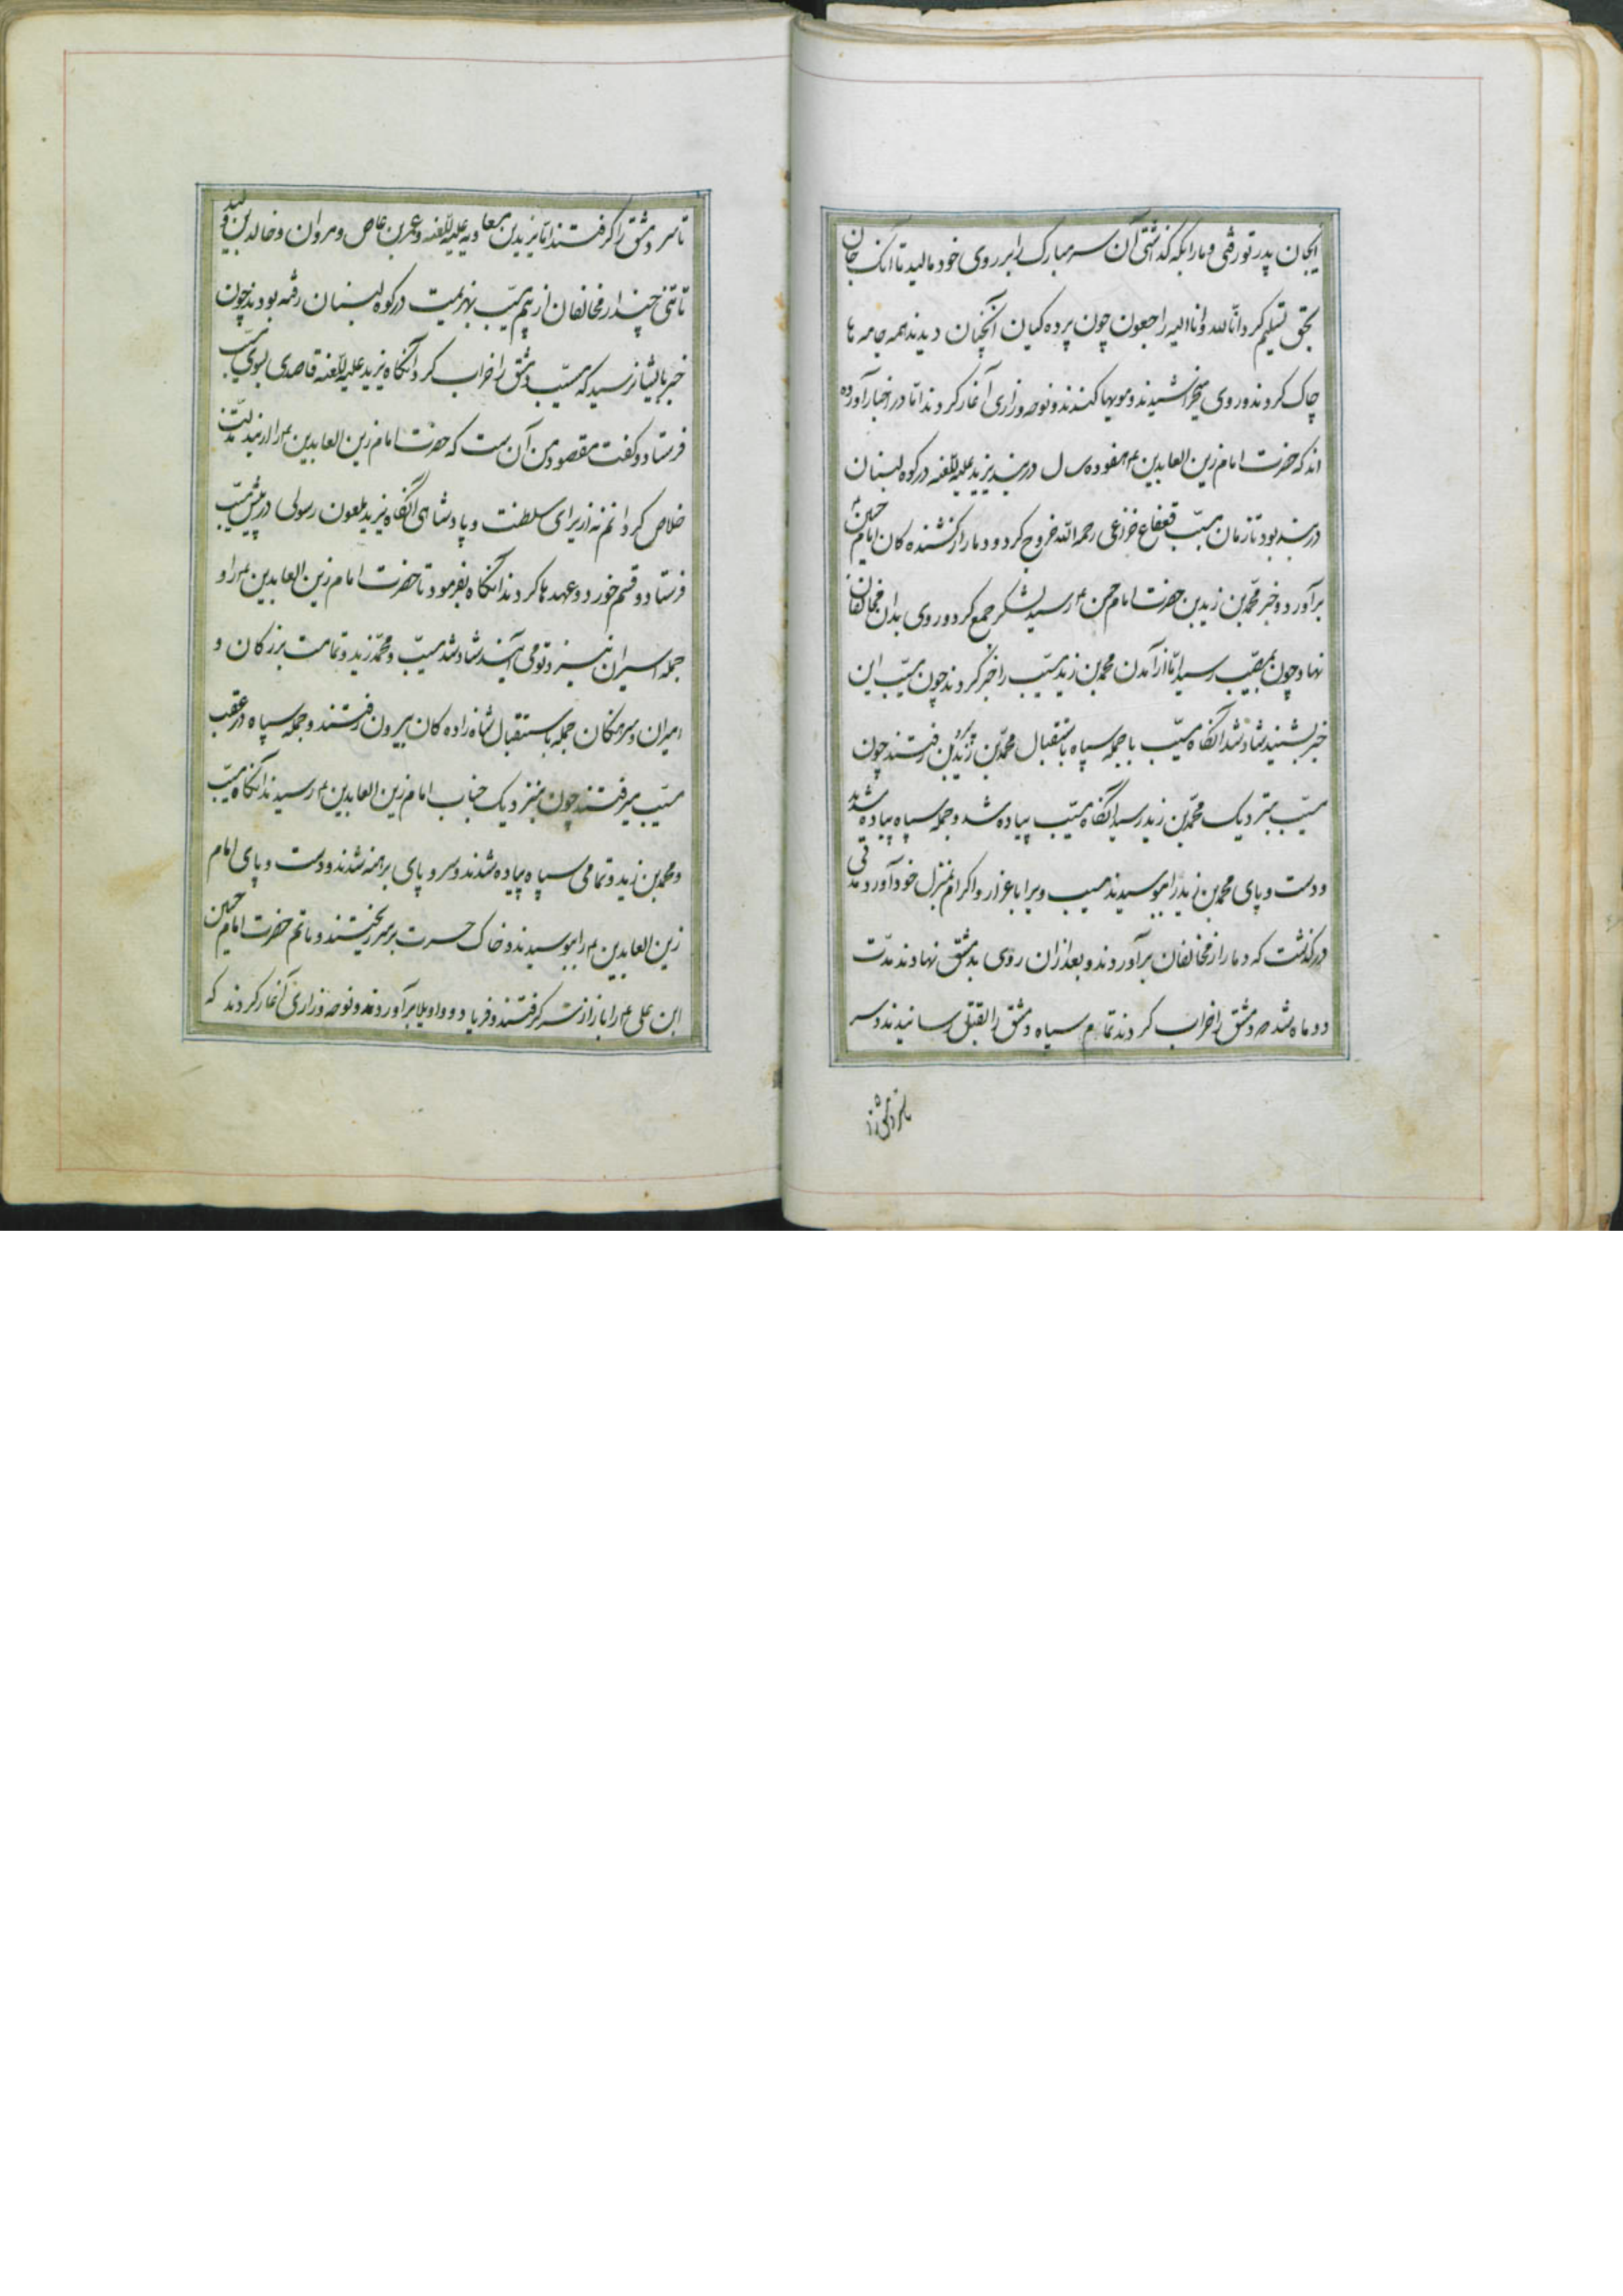 ایجان پدر تو رفتی و ما را بکه کذاشتی آن سر مبارک را بر روی خود مالید تا آنک جان
بحق تسلیم کرد انّا للّه و انا الیه راجعون چون پرده کیان آنچنان دیدند همه جامه ها
چاک کردند و روی بخراشیدند و مویها کندند و نوحه و زاری آغاز کردند امّا در اخبار آورده
اند که حضرت امام زین العابدین ۴ هفده سال در بند یزید علیه اللّعنه در کوه لبنان
در بند بود تا زمان مسیّب قعقاع خزاعی رحمه اللّه خروج کرد و دمار از کشنده کان امام حسین ۴
برآورد و خبر محمّد بن زید بن حضرت امام حسن ۴ رسید لشکر جمع کرد و روی بدان مخالفان
نهاد چون بمصیّب رسید امّا از آمدن محمد بن زید مسیّب را خبر کردند چون مسیّب این
خبر بشنید شاد شد آنگاه مسیّب با جمله سپاه باستقبال محمّد بن زید بن رفتند چون
مسیّب بنزدیک محمّد بن زید رسید آنگاه مسیّب پیاده شد و جمله سپاه پیاده شدند
و دست و پای محمد بن زید را بوسیدند مسیب ویرا باعزاز و اکرام بمنزل خود آورد مدتی
درکذشت که دمار از مخالفان برآوردند و بعد از آن روی بدمشق نهادند مدّت
دو ماه شد و دمشق را خراب کردند تمام سپاه دمشق را بقتل رسانیدند و سر
تا سر دمشق را کرفتند امّا یزید بن معاویه علیه اللّعنه و عمر بن عاص و مروان و خالد بن ولید
تا تنی چند از مخالفان از بیم مسیّب بهزیمت در کوه لبنان رفته بودند چون
خبر بایشان رسید که مسیّب دمشق را خراب کرد آنگاه یزید علیه اللّعنه قاصدی بسوی مسیّب
فرستاد و کفت مقصود من آن است که حضرت امام زین العابدین ۴ را از بند مذلّت
خلاص کردانم نه از برای سلطنت و پادشاهی آنگاه یزید ملعون رسولی در پیش مسیّب
فرستاد و قسم خورد و عهدها کردند آنگاه بفرمود تا حضرت امام زین العابدین ۴ را و
جمله اسیران نیز و تو می آیند شاد شد مسیّب و محمّد زید و تمامت بزرکان و
امیران و سرهنکان جمله باستقبال شاه زاده کان بیرون رفتند و جمله سپاه در عقب
مسیّب میرفتند چون بنزدیک جناب امام زین العابدین ۴ رسیدند آنگاه مسیّب
و محمد بن زید و تمامی سپاه پیاده شدند و سر و پای برهنه شدند و دست و پای امام
زین العابدین ۴ را بوسیدند و خاک حسرت بر سر ریختند و ماتم حضرت امام حسین
ابن علی ۴ را باز از سر کرفتند و فریاد و واویلا برآوردند و نوحه و زاری آغاز کردند که